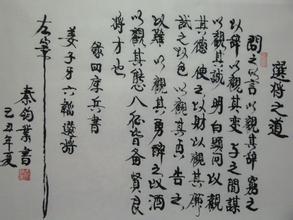 選將之道
問之以言以觀其辭窮之
以辭以觀其變予之間諜
以觀其誠明白顯問以觀
其德使之以財以觀其廉
試之以色以觀其貞告之
以難以觀其勇醉之以酒
以觀其態八徵皆備賢良
將才也
錄四庫兵書
姜子牙六韜選將
秦鈞業書
己丑年夏